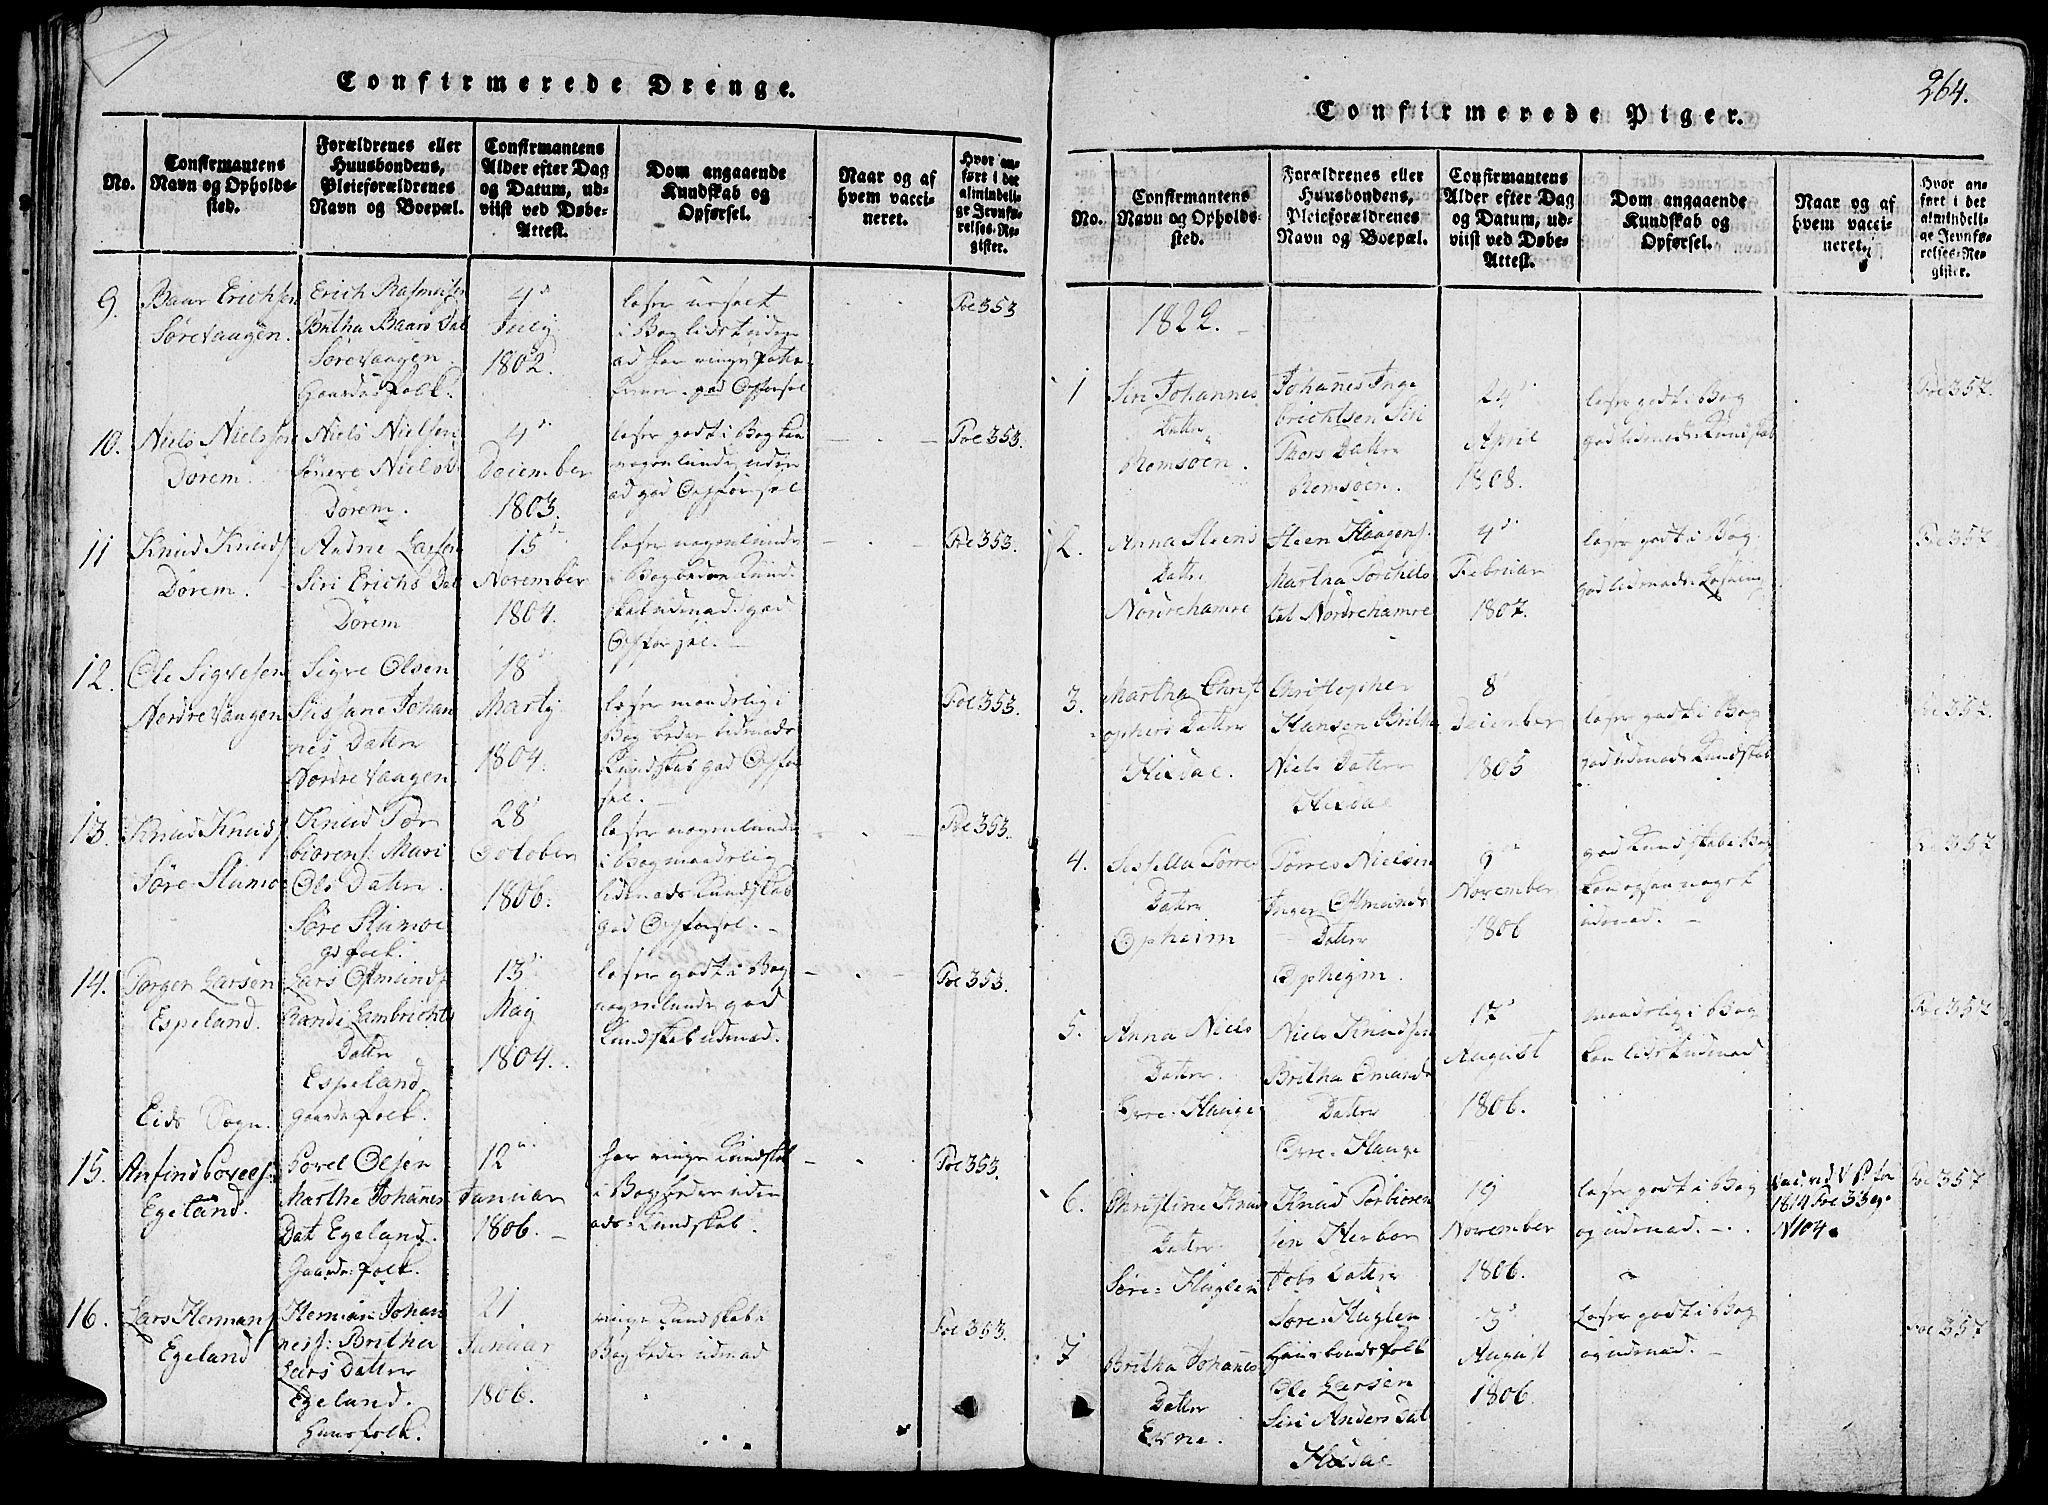 Confirmerede Drenge.
No.
Confirmantens
Navn og Opholds-
sted.
Forældrenes eller
Huusbondens,
Pleieforældrenes
Navn og Boepæl.
Confirmantens
Alder efter Dag
og Datum, ud-
viist ved Døbe-
Attest.
Dom angaaende
Kundskab og
Opførsel.
Naar og af
hvem vacci-
neret.
Hvor an-
ført i det
almindeli-
ge Jevnfø-
relses-Re-
gister.
9.
Baar Erichsen
Sørevaagen.
Erich Rasmusen
Britha Baars Dat
Sørevaagen
Gaardsfolk.
4de
July
1802.
i Bog lidet uden
ad har ringe
god Opførsel
Foe 353
10.
Niels Nielssen
Dørem.
Niels Nielsen
Niels
Dørem.
4de
December
1803.
læser godt i Bog kan
nogenlunde uden
ad god Opførsel
Foe 353
11
Knud Knuds
Dørem.
Andrie Larsen
Siri Erichs Dat
Dørem
15de
November
1804.
læser nogenlunde
i Bog beder Kund-
skab udenad god
Opførsel.
Foe 353.
12.
Ole Sigvesen
Nordrevaagen
Sigve Olsen
Johan
nes Datter
Nordrevaagen
18de
Martj
1804.
læser maadelig i
Bog beder udenads
Kundskab god Opfør
sel.
Foe 353.
13.
Knud Knuds
Søre Stumoe
Knud Tor
biørens. Mari
Ols Datter
Søre Stumoe
gdfolk.
28de
October
1806.
læser nogenlunde
i Bog maadelig
udenads Kundskab
god Opførsel.
Foe 353.
14.
Torger Larsen
Espeland.
Eids Sogn.
Lars Osmunds
Randi Lambrichts
Datter
Espeland
gaardsfolk.
13de
Maj
1804.
læser godt i Bog
nogenlunde god
Kundskab udenad.
Foe 353.
15.
Anfind Povels
Egeland.
Povel Olsen
Marthe Johanes
Dat Egeland.
Gaardsfolk.
12te
Januar
1806.
har ringe Kundskab
i Bog beder uden
ads Kundskab.
Foe 353.
16.
Lars Hermans
Egeland
Herman Johan
ness: Britha
Lars Datter
Egeland.
Huusfolk.
21
Januar
1806.
ringe Kundskab i
Bog beder udenad
Foe 353.
264.
Confirmerede Piger.
No.
Confirmantens
Navn og Opholds-
sted.
Forældrenes eller
Huusbondens,
Pleieforældrenes
Navn og Boepæl.
Confirmantens
Alder efter Dag
og Datum, ud-
viist ved Døbe-
Attest.
Dom angaaende
Kundskab og
Opførsel.
Naar og af
hvem vacci-
neret.
Hvor an-
ført i det
almindeli-
ge Jevnfø-
relses-Re-
gister.
1822.
1
Siri Johannes
Datter
Romsøen.
Johanes Inge
brechtsen Siri
Thors Datter
Romsøen.
24de
April
1808.
læser godt i Bog
god udenads Kundskab
Foe 357.
2.
Anna Steens
Datter
Nordrehamre
Steen Haagens.
Martha Torchels
dat Nordrehamre
4de
Februar
1807.
læser godt i Bog.
god udenads Læsning
Foe 357
3.
Martha Christ
ophers Datter
Christopher
Hansen Britha
Niels Datter
8de
December
1805
læser godt i Bog
god udenads Kundskab
Foe 352.
4.
Torres
Datter
Opheim
Torres Nielsen
Inger Osmunds
Datter
Opheim.
9de
November
1806
god Kundskab i Bog
kan ogsaa noget
udenad.
Foe 357
5.
Anna Niels
Datter
Øvre-Hauge
Niels Knudsen
Britha Emunds
Datter
Øvre-Hauge
17de
August
1806.
maadelig i Bog
kan lidet udenad
Foe 357
6.
Christine Knuds
Datter
Søre-Huglen
Knud Torbioren
sen Herbor
Jobs Datter
Søre-Huglen
Huusbondsfolk
19
November
1806.
læser godt i Bog
og udenad.
1814 Foe 33
N 104.
Foe 357
7
Britha Johanes
Datter
Ole Larsen
Siri Anders Dat
3de
August
1806.
Læser godt i Bog
og udenad.
Foe 357